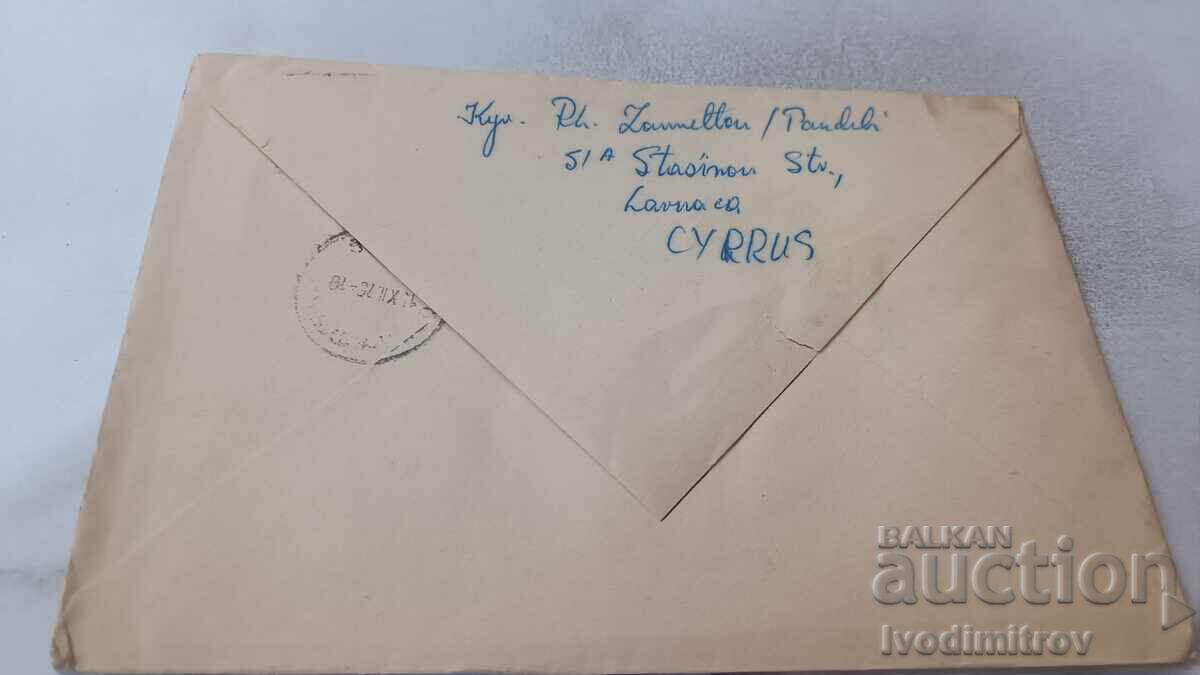 Kyr. Ph. Zannettou / Pandebi
51A Stasinou Str.,
Larnaca
CYPRUS
XII.75-10
BALKAN
auction
Ivodimitrov